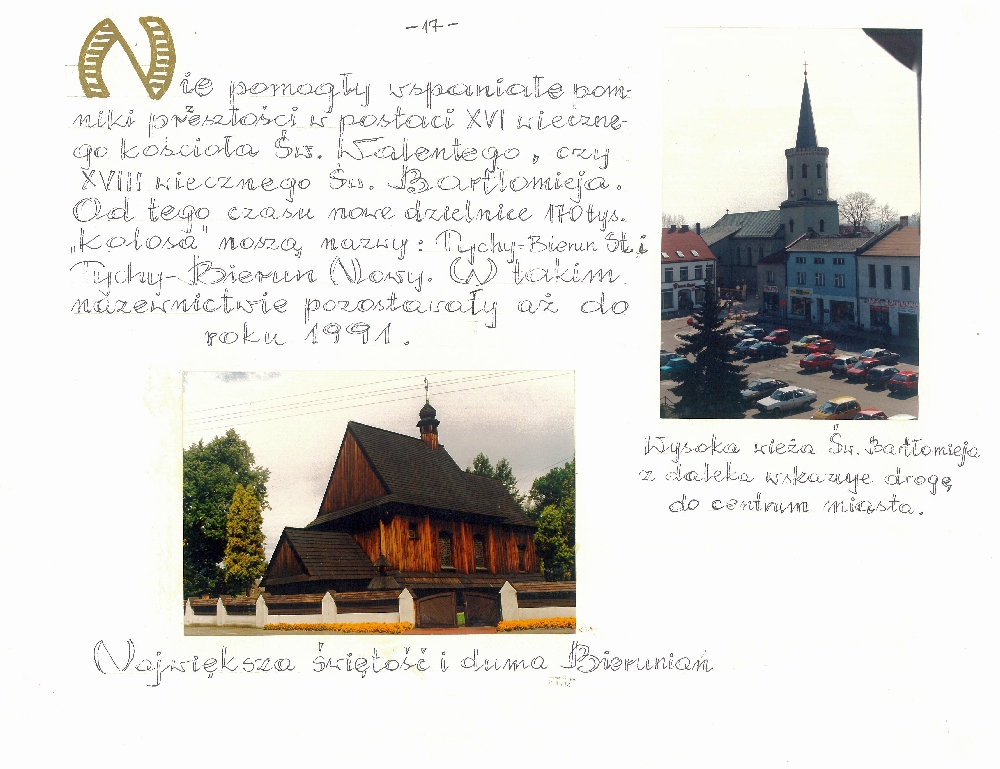 - 17 -
Nie pomogły wspaniałe pom-
niki przeszłości w postaci XVI wieczne-
go kościoła Św. Walentego, czy
XVIII wiecznego Św. Bartłomieja.
Od tego czasu nowe dzielnice 170 tys.
"kolosa" noszą nazwy: Tychy-Bieruń St. i
Tychy-Bieruń Nowy. W takim
nazewnictwie pozostawały aż do
roku 1991.
Wysoka wieża Św. Bartłomieja
z daleka wskazuje drogę
do centrum miasta.
Największa świętość i duma Bierunian